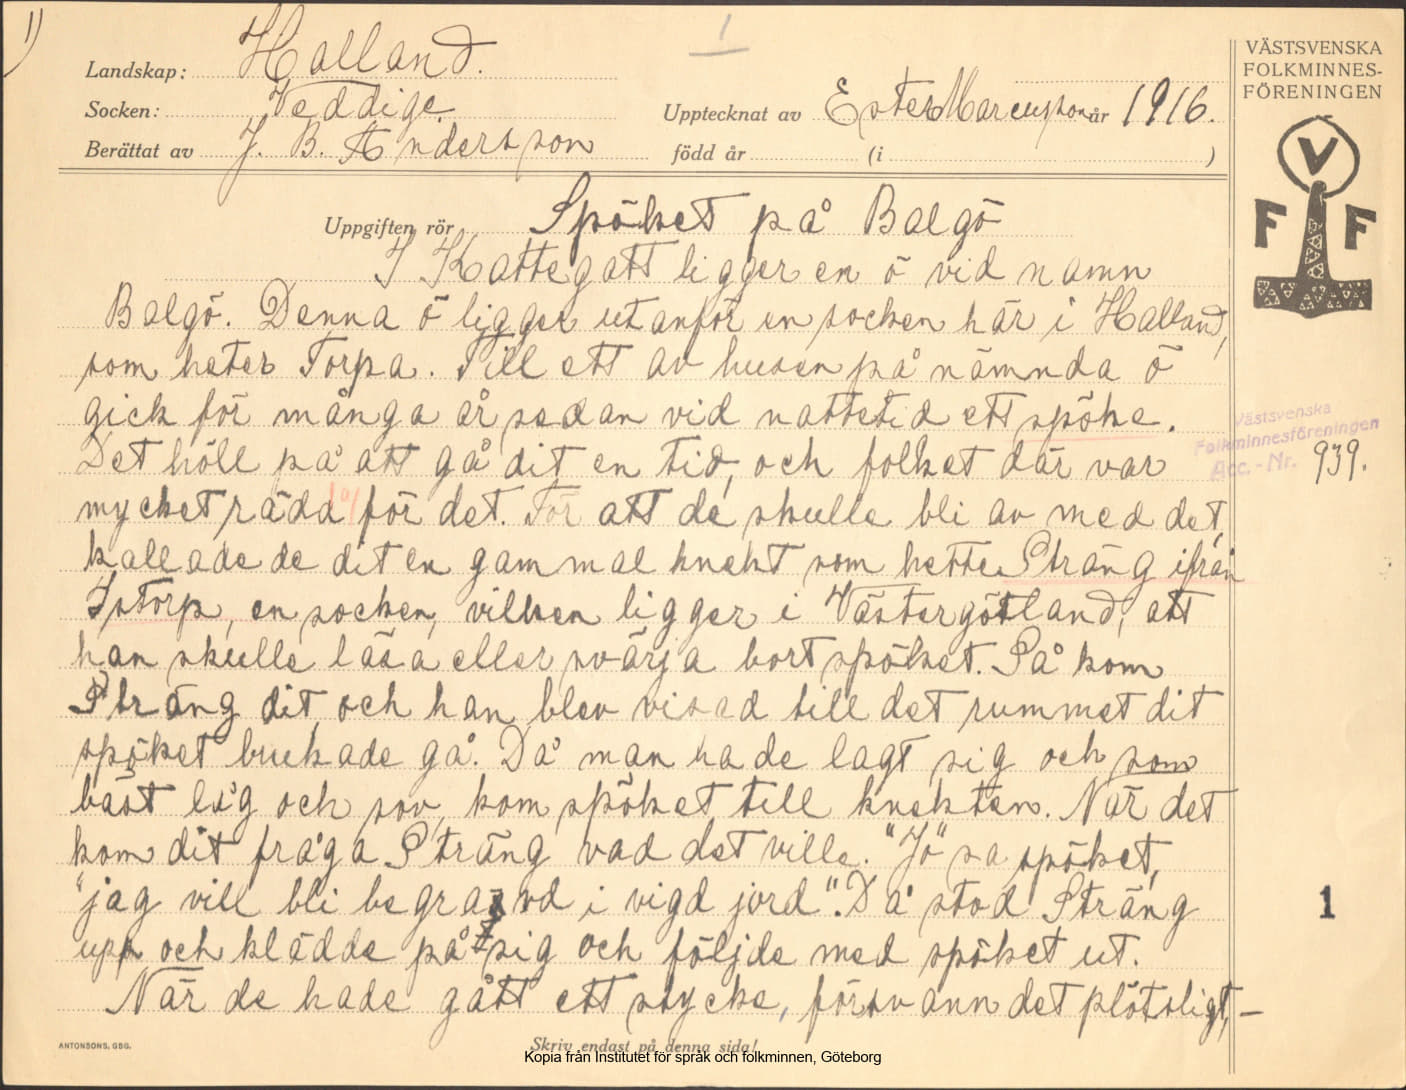 1)
1
Landskap: Halland.
Socken: Veddige.
Upptecknat av Ester Marcusson år 1916.
Berättat av J. B. Andersson
född år (i )
VÄSTSVENSKA
FOLKMINNES-
FÖRENINGEN
V
F F
Uppgiften rör Spöket på Balgö
I Kattegatt ligger en ö vid namn
Balgö. Denna ö ligger utanför en socken här i Halland,
som heter Torpa. Till ett av husen på nämnda ö
gick för många år sedan vid nattetid ett spöke.
Det höll på att gå dit en tid, och folket där var
mycket rädda för det. För att de skulle bli av med det,
kallade de dit en gammal knekt som hette Sträng ifrån
Istorp, en socken, vilken ligger i Västergötland, att
han skulle läsa eller svärja bort spöket. Så kom
Sträng dit, och han blev visad till det rummet dit
spöket brukade gå. Då man hade lagt sig och som
bäst låg och sov, kom spöket till knekten. När det
kom dit fråga Sträng vad det ville. "Jö" sa spöket,
"jag vill bli begravd i vigd jord". Då stod Sträng
upp och klädde på sig och följde med spöket ut.
När de hade gått ett stycke, försvann det plötsligt, –
Västsvenska
Folkminnesföreningen
Acc.-Nr. 939.
1
ANTONSONS, GBG.
Skriv endast på denna sida!
Kopia från Institutet för språk och folkminnen, Göteborg